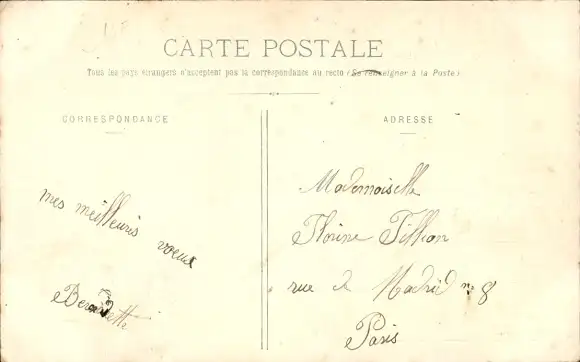 CARTE POSTALE
Tous les pays étrangers n'acceptent pas la correspondance au recto (Se renseigner à la Poste)
CORRESPONDANCE
ADRESSE
mes meilleurs voeux
Bernadette
Mademoiselle
Florine Tillion
rue de Madrid n: 8
Paris